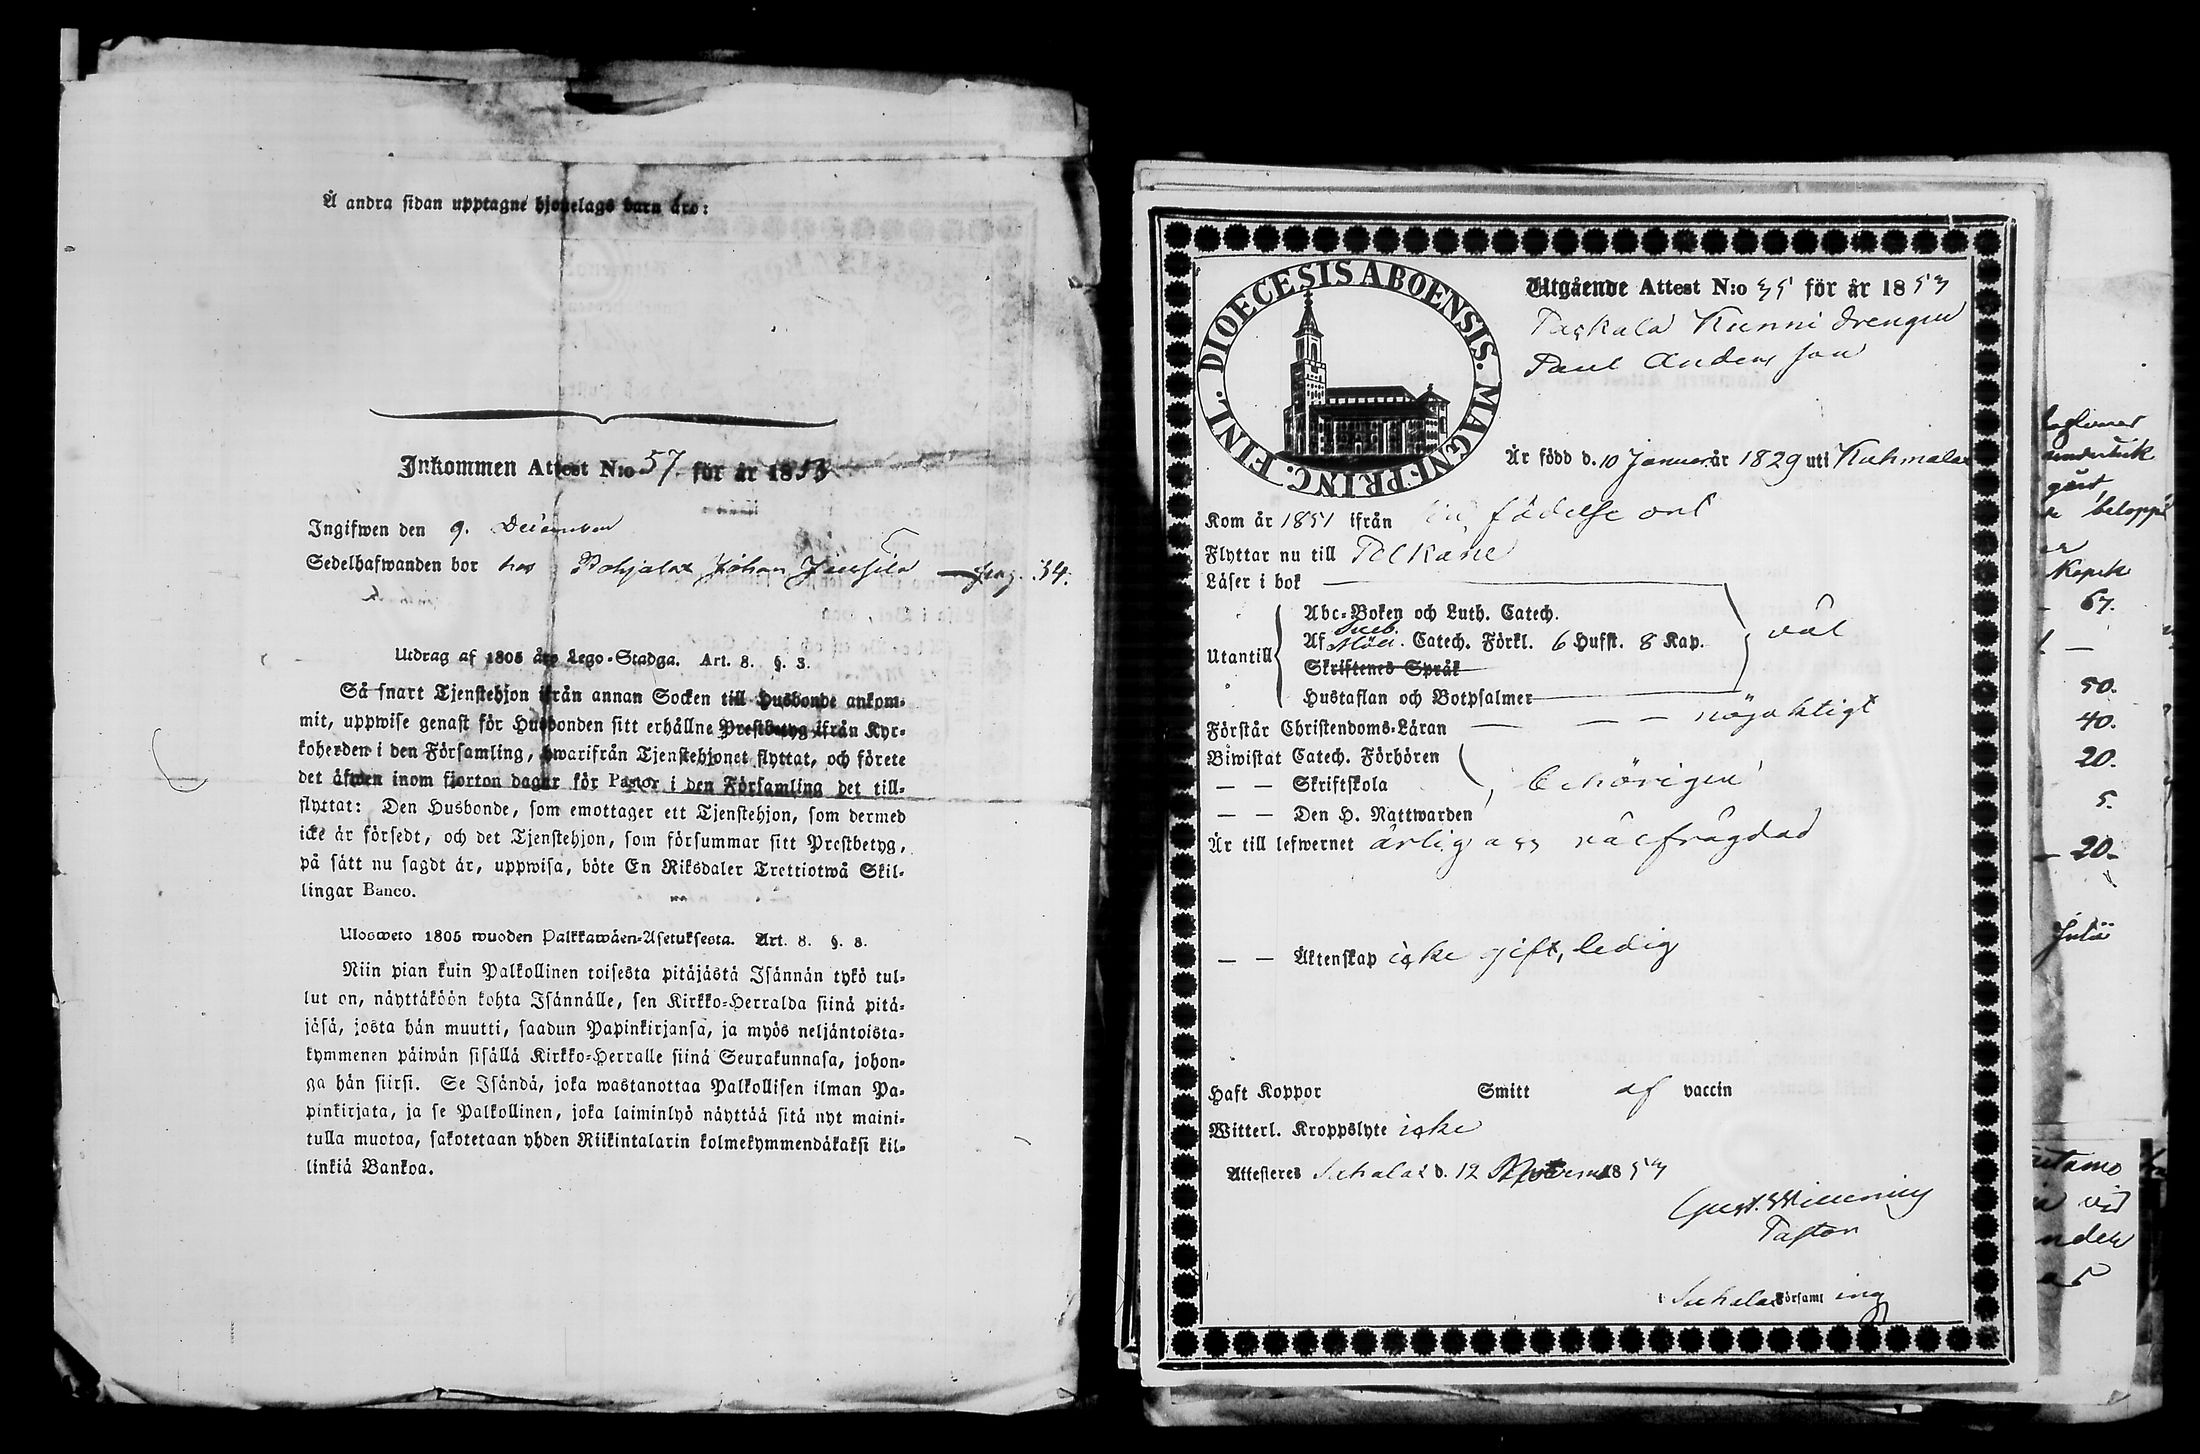 Å andra sidan upptagne hjonelags barn äro:
Inkommen Attest N:o 57. för år 1853
Ingifwen den 9. December
Sedelhafwanden bor hos Pohjalax Johan Jaussila pag. 34.
Utdrag af 1805 års Lego-Stadga. Art. 8. §. 3.
Så snart Tjenstehjon ifrån annan Socken till Husbonde ankom-
mit, uppwise genast för Husbonden sitt erhållne Prestbetyg ifrån Kyr-
koherden i den Församling, hwarifrån Tjenstehjonet flyttat, och förete
det äfwen inom fjorton dagar för Pastor i den Församling det till-
flyttat: Den Husbonde, som emottager ett Tjenstehjon, som dermed
icke är försedt, och det Tjenstehjon, som försummar sitt Prestbetyg,
på sätt nu sagdt är, uppwisa, böte En Riksdaler Trettiotwå Skil-
lingar Banco.
Ulosweto 1805 wuoden Palkkawäen-Asetuksesta. Art. 8. §. 3.
Niin pian kuin Palkollinen toisesta pitäjästä Isännän tykö tul-
lut on, näyttäköön kohta Isännälle, sen Kirkko-Herralda siinä pitä-
jäsä, josta hän muutti, saadun Papinkirjansa, ja myös neljäntoista-
kymmenen päiwän sisällä Kirkko-Herralle siinä Seurakunnasa, johon-
ga hän siirsi. Se Isändä, joka wastanottaa Palkollisen ilman Pa-
pinkirjata, ja se Palkollinen, joka laiminlyö näyttää sitä nyt maini-
tulla muotoa, sakotetaan yhden Riikintalarin kolmekymmendäkaksi kil-
linkiä Bankoa.
DIOECESIS ABOENSIS. MAGNI PRINC. FINL.
Utgående Attest N:o 35 för år 1853
Taskala Kunni drengen
Paul Andersson
Är född d. 10 Januar år 1829 uti Kuhmalax
Kom år 1851 ifrån födelse ort
Flyttar nu till Pelkäne
Läser i bok
Abc-Boken och Luth. Catech.
Sveb.
Utantill Af Möll. Catech. Förkl. 6 Hufst. 8 Kap. väl
Skriftenes Språk
Hustaflan och Botpsalmer
Förstår Christendoms-Läran — — — nöjaktigt
Biwistat Catech. Förhören
— — Skriftskola behörigen
— — Den H. Nattwarden
Är till lefwernet ärlig och välfrägdad
— — Äktenskap icke gift, ledig
Haft Koppor Smitt af vaccin
Witterl. Kroppslyte icke
Attesteras Sahalax d. 12 Novem 1853
Gust. Winning
Pastor
i Sahalax Församling
beloppe
Kopek
67.
50.
40.
20.
5.
20
Julii
vid